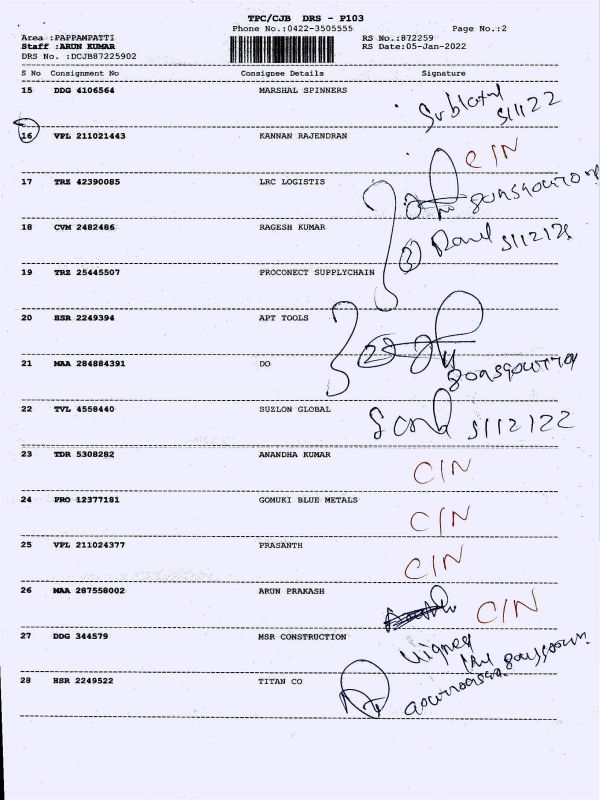 TPC/CJB DRS - P103
Phone No.:0422-3505555 Page No.:2
Area :PAPPAMPATTI RS No.:872259
Staff :ARUN KUMAR RS Date:05-Jan-2022
DRS No. :DCJB87225902
S No Consignment No Consignee Details Signature
15 DDG 4106564 MARSHAL SPINNERS
16 VPL 211021443 KANNAN RAJENDRAN C/N
17 TRZ 42390085 LRC LOGISTIS
18 CVM 2482486 RAGESH KUMAR
19 TRZ 25445507 PROCONECT SUPPLYCHAIN
20 HSR 2249394 APT TOOLS
21 MAA 284884391 DO
22 TVL 4558440 SUZLON GLOBAL
23 TDR 5308282 ANANDHA KUMAR C/N
24 PRO 12377181 GOMUKI BLUE METALS C/N
25 VPL 211024377 PRASANTH C/N
26 MAA 287558002 ARUN PRAKASH C/N
27 DDG 344579 MSR CONSTRUCTION
28 HSR 2249522 TITAN CO